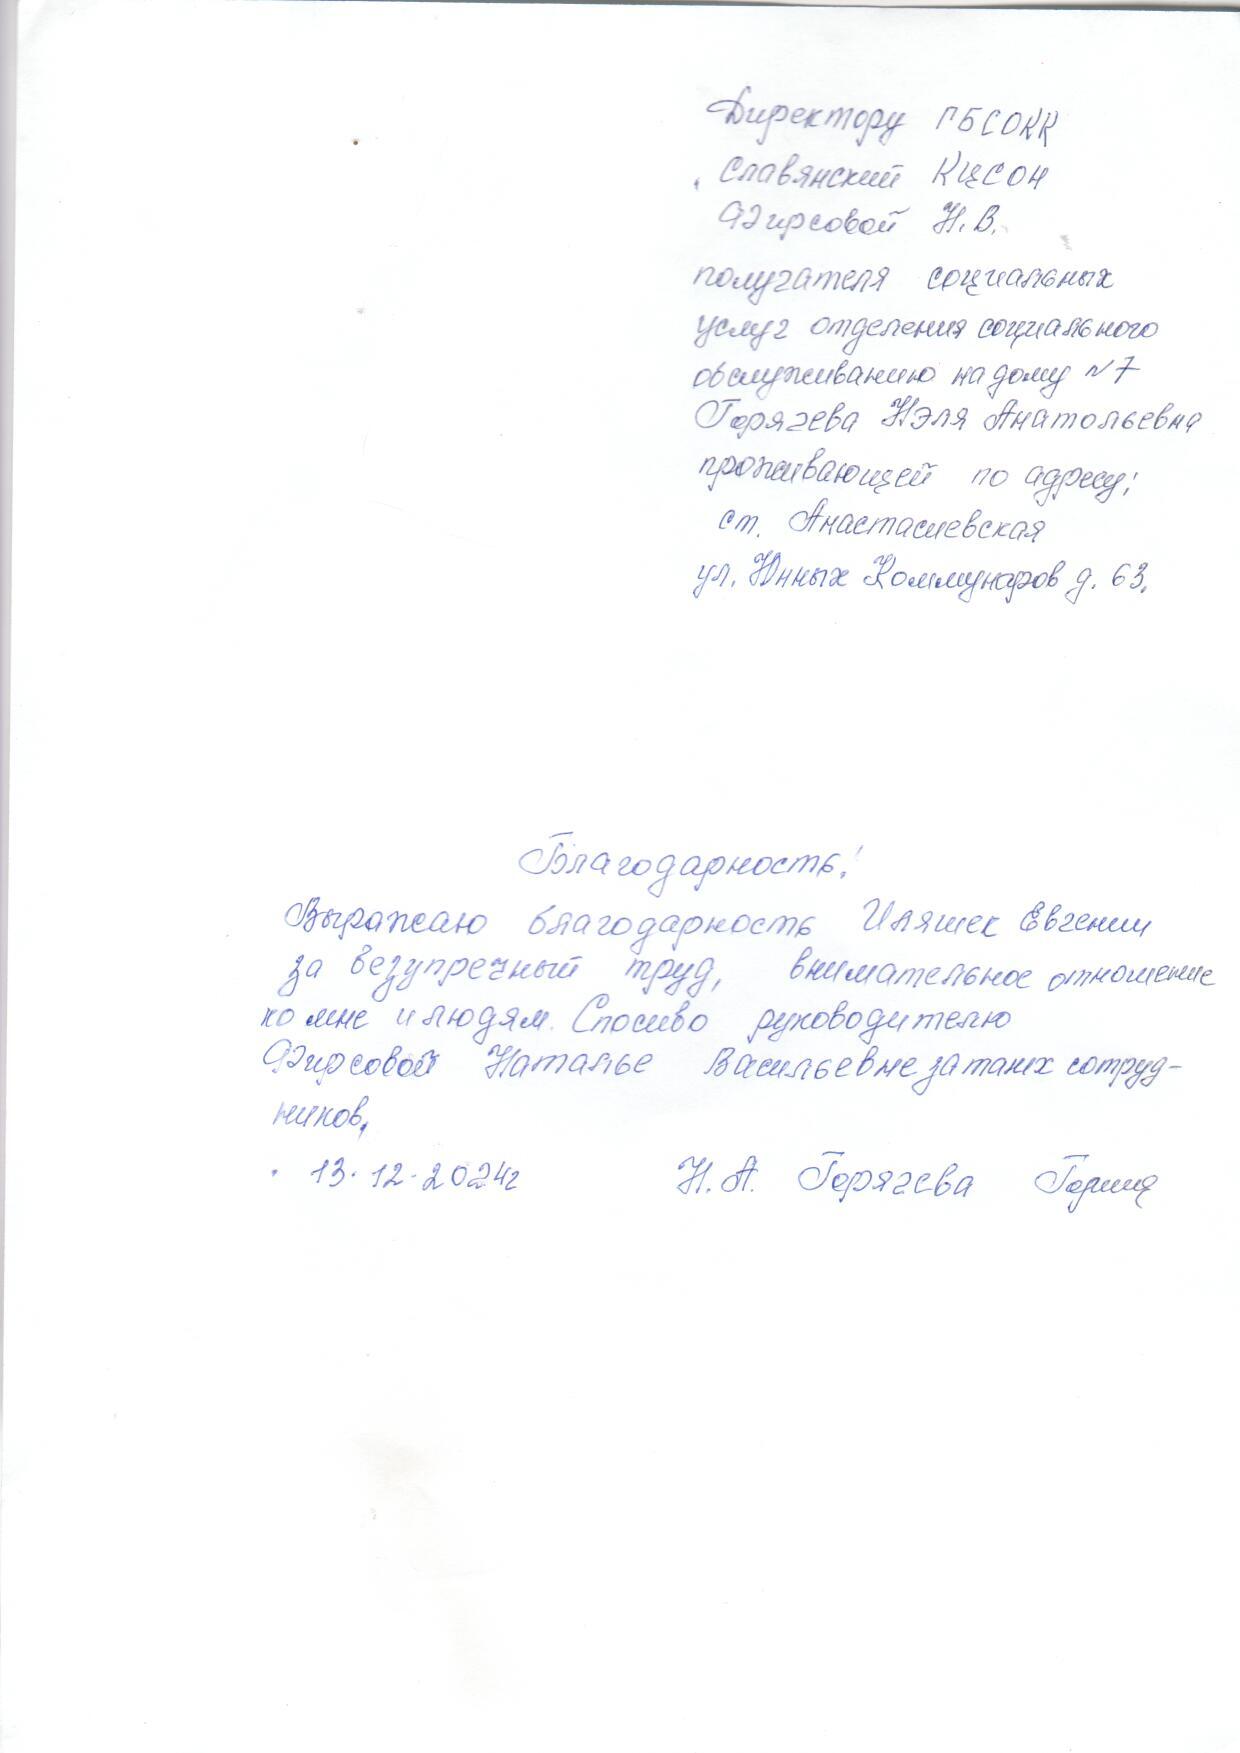 Директору ГБСОКК
Славянский КЦСОН
Фирсовой Н.В.
получателя социальных
услуг отделения социального
обслуживанию на дому №7
Горячева Нэля Анатольевна
проживающей по адресу:
ст. Анастасиевская
ул. Юнных Коммунаров д. 63.
Благодарность!
Выражаю благодарность Иляшек Евгении
за безупречный труд, внимательное отношение
ко мне и людям. Спосиво руководителю
Фирсовой Наталье Васильевне за таких сотруд-
ников.
13.12.2024г Н.А. Горячева